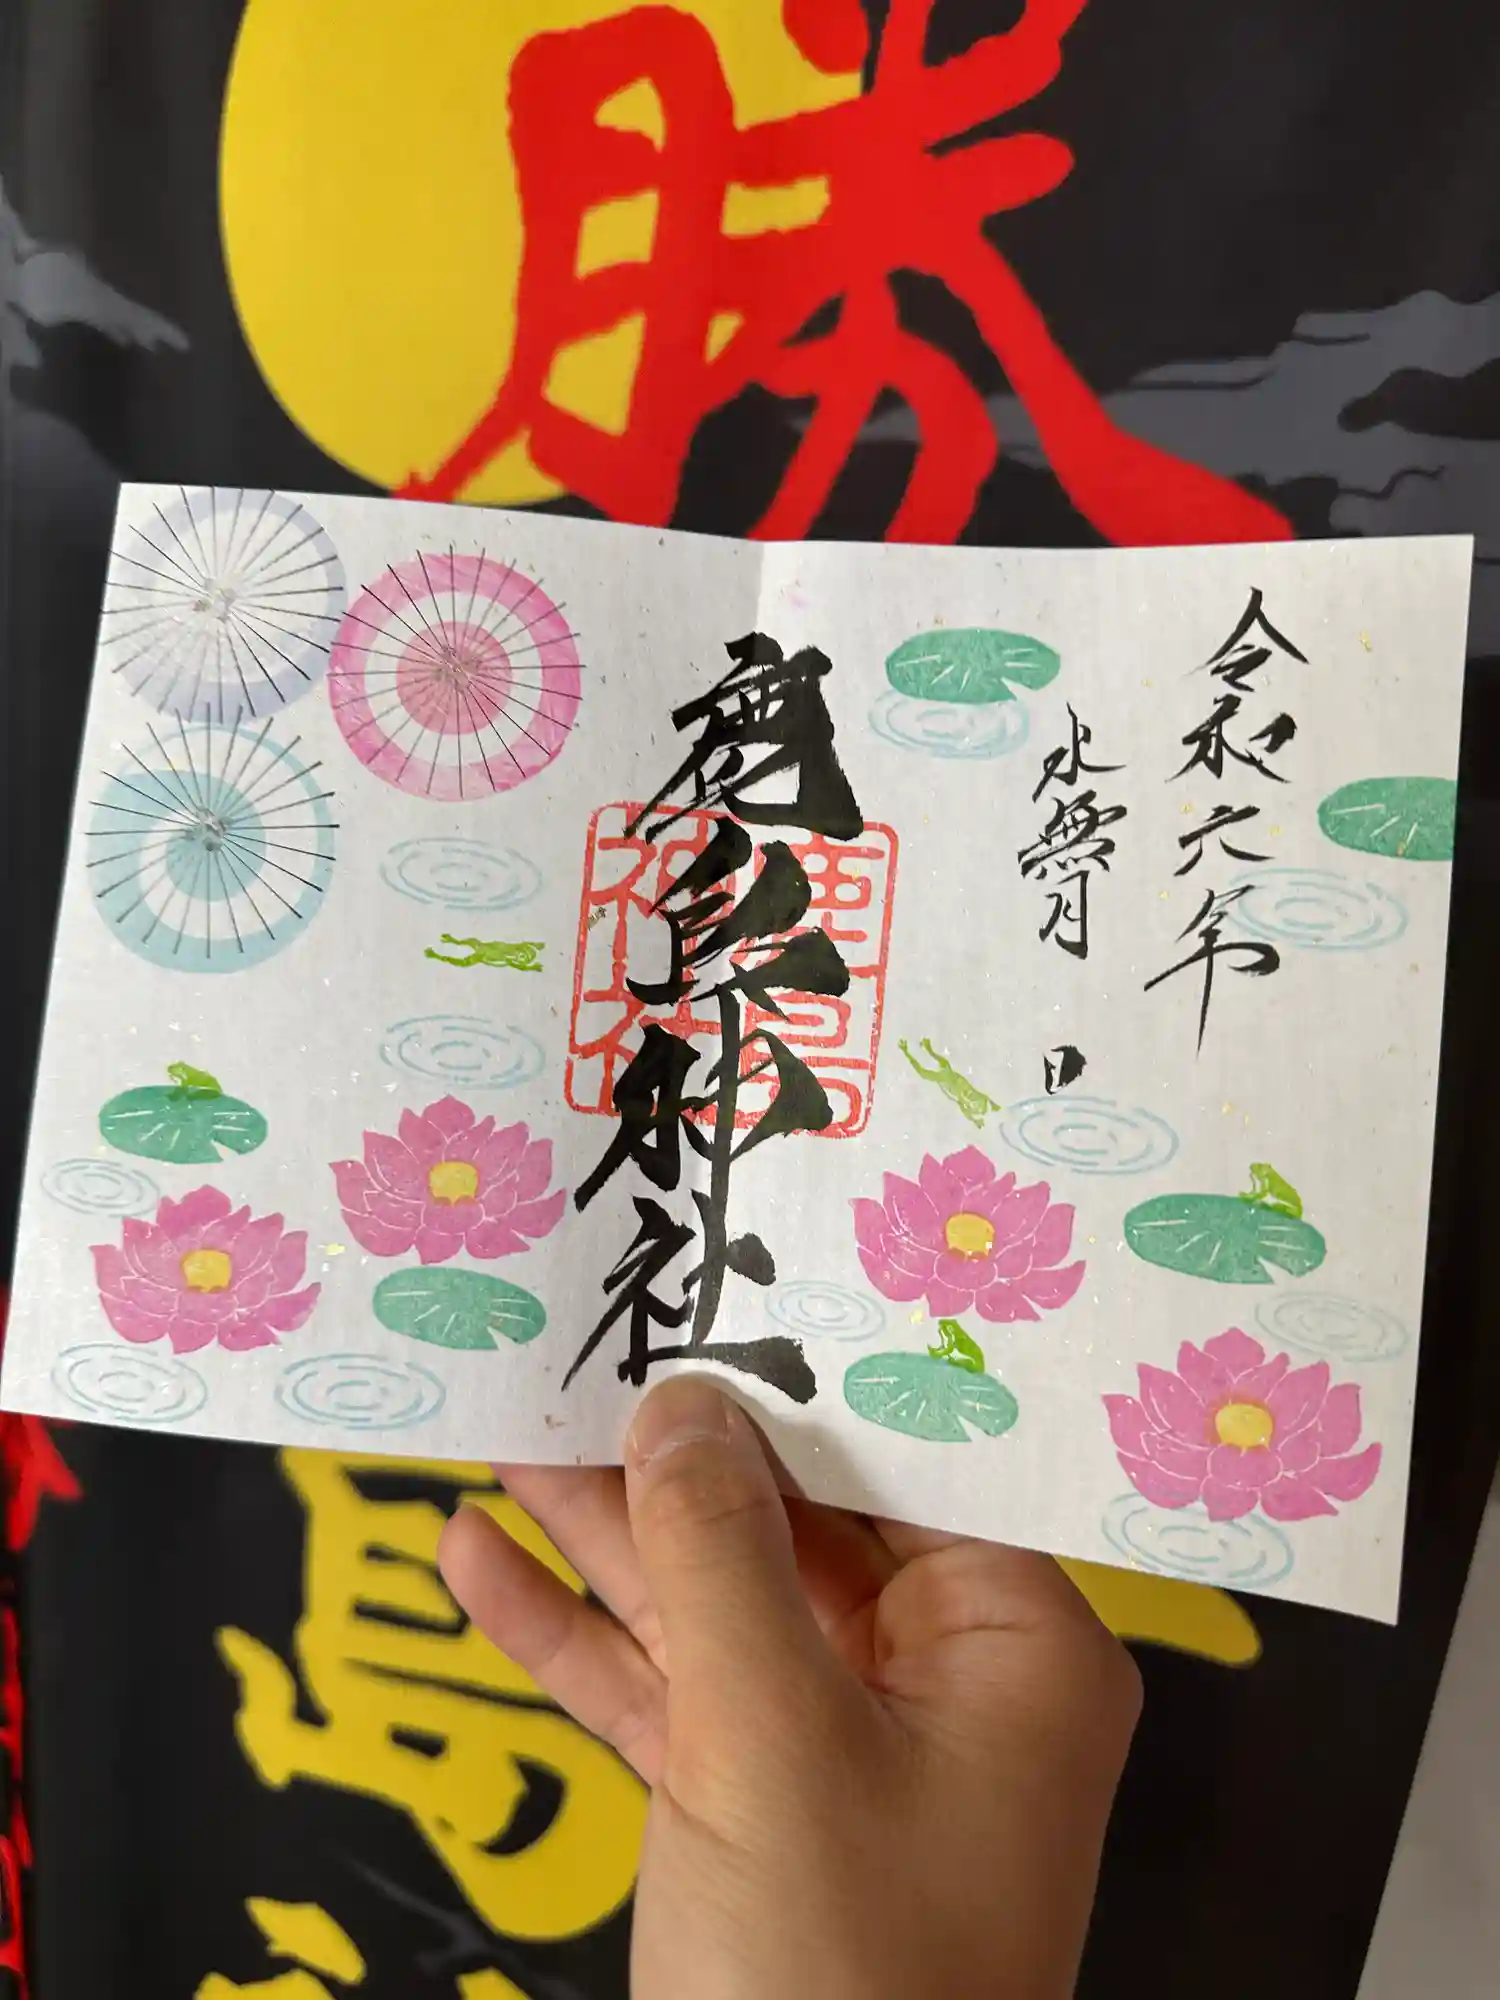 勝
令和六年
水無月
日
鹿島神社
鹿島
神社